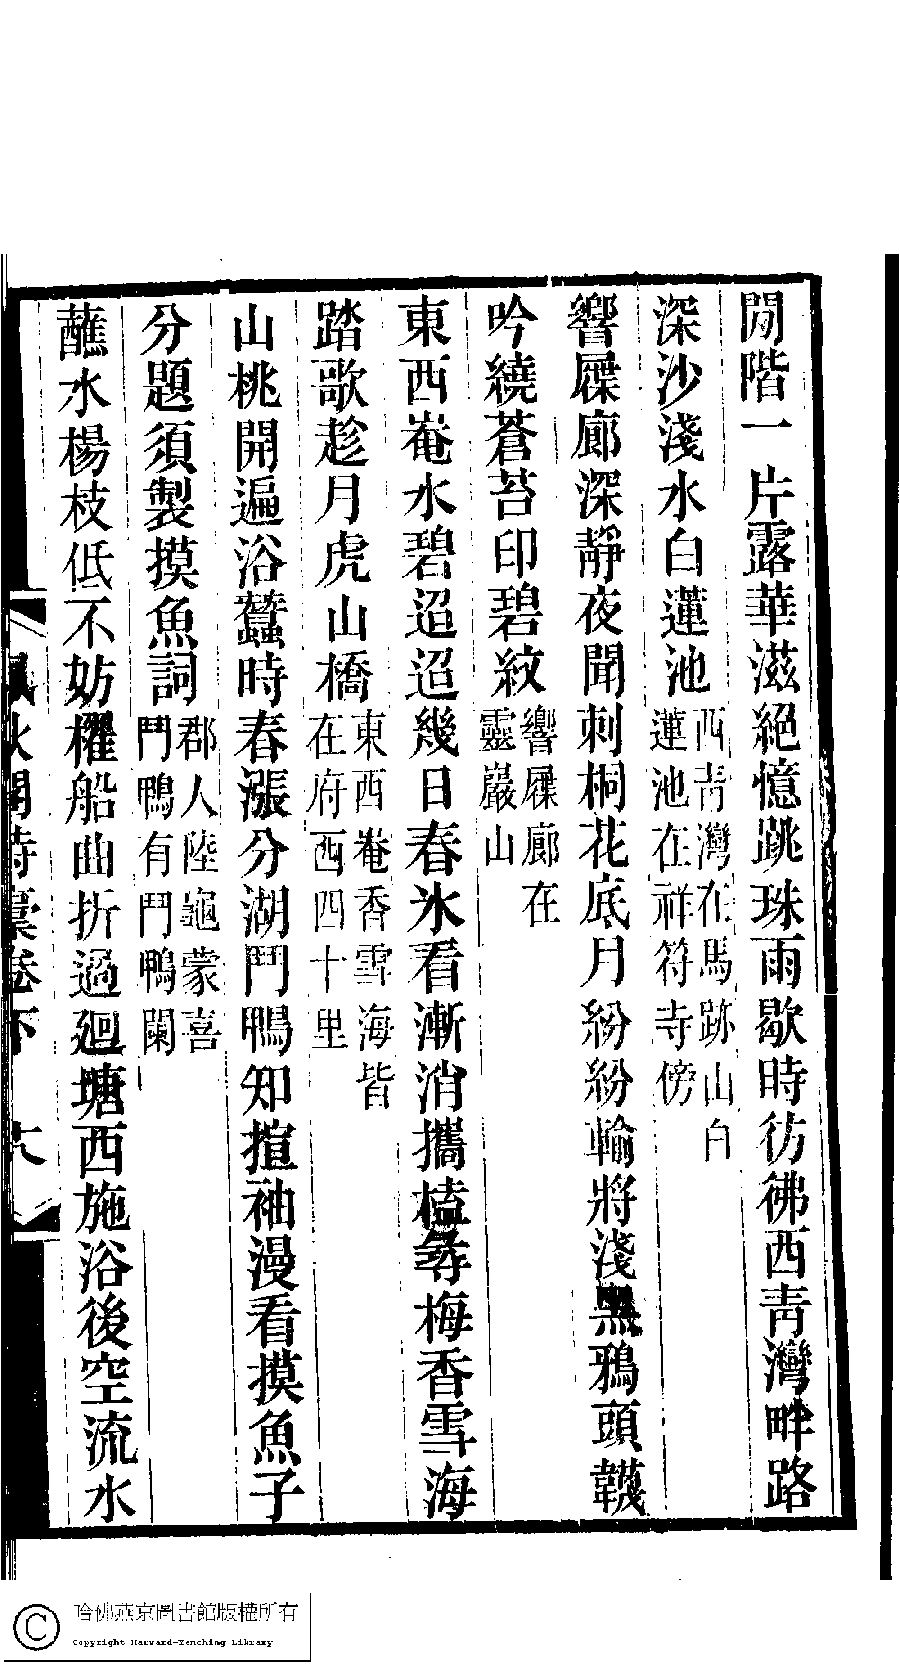 閒階一片露華滋絕憶跳珠雨歇時彷彿西青灣畔路
深沙淺水白蓮池西青灣在馬跡山白蓮池在祥符寺傍
響屧廊深靜夜聞刺桐花底月紛紛輸將淺黑鴉頭韈
吟繞蒼苔印碧紋響屧廊在靈巖山
東西菴水碧迢迢幾日春氷看漸消攜榼尋梅香雪海
踏歌趁月虎山橋東西菴香雪海皆在府西四十里
山桃開遍浴蠶時春漲分湖鬥鴨知揎袖漫看摸魚子
分題須製摸魚詞郡人陸龜蒙喜鬥鴨有鬥鴨闌
蘸水楊枝低不妨櫂船曲折過廻塘西施浴後空流水
詩囊卷下
哈佛燕京圖書館版權所有
Copyright Harvard-Yenching Library